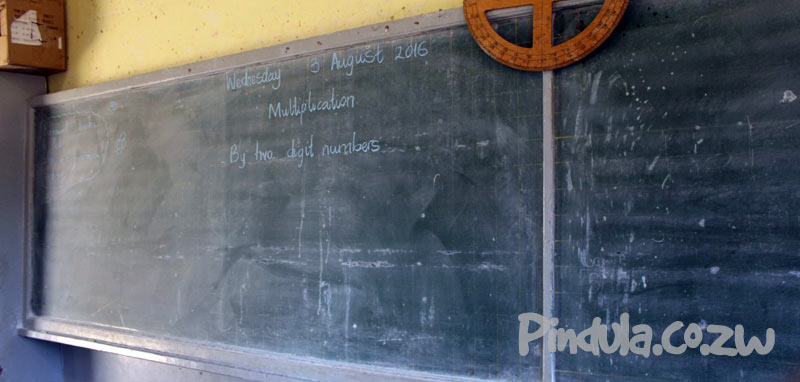 Wednesday 3 August 2016
Multiplication
By two digit numbers
Pindula.co.zw